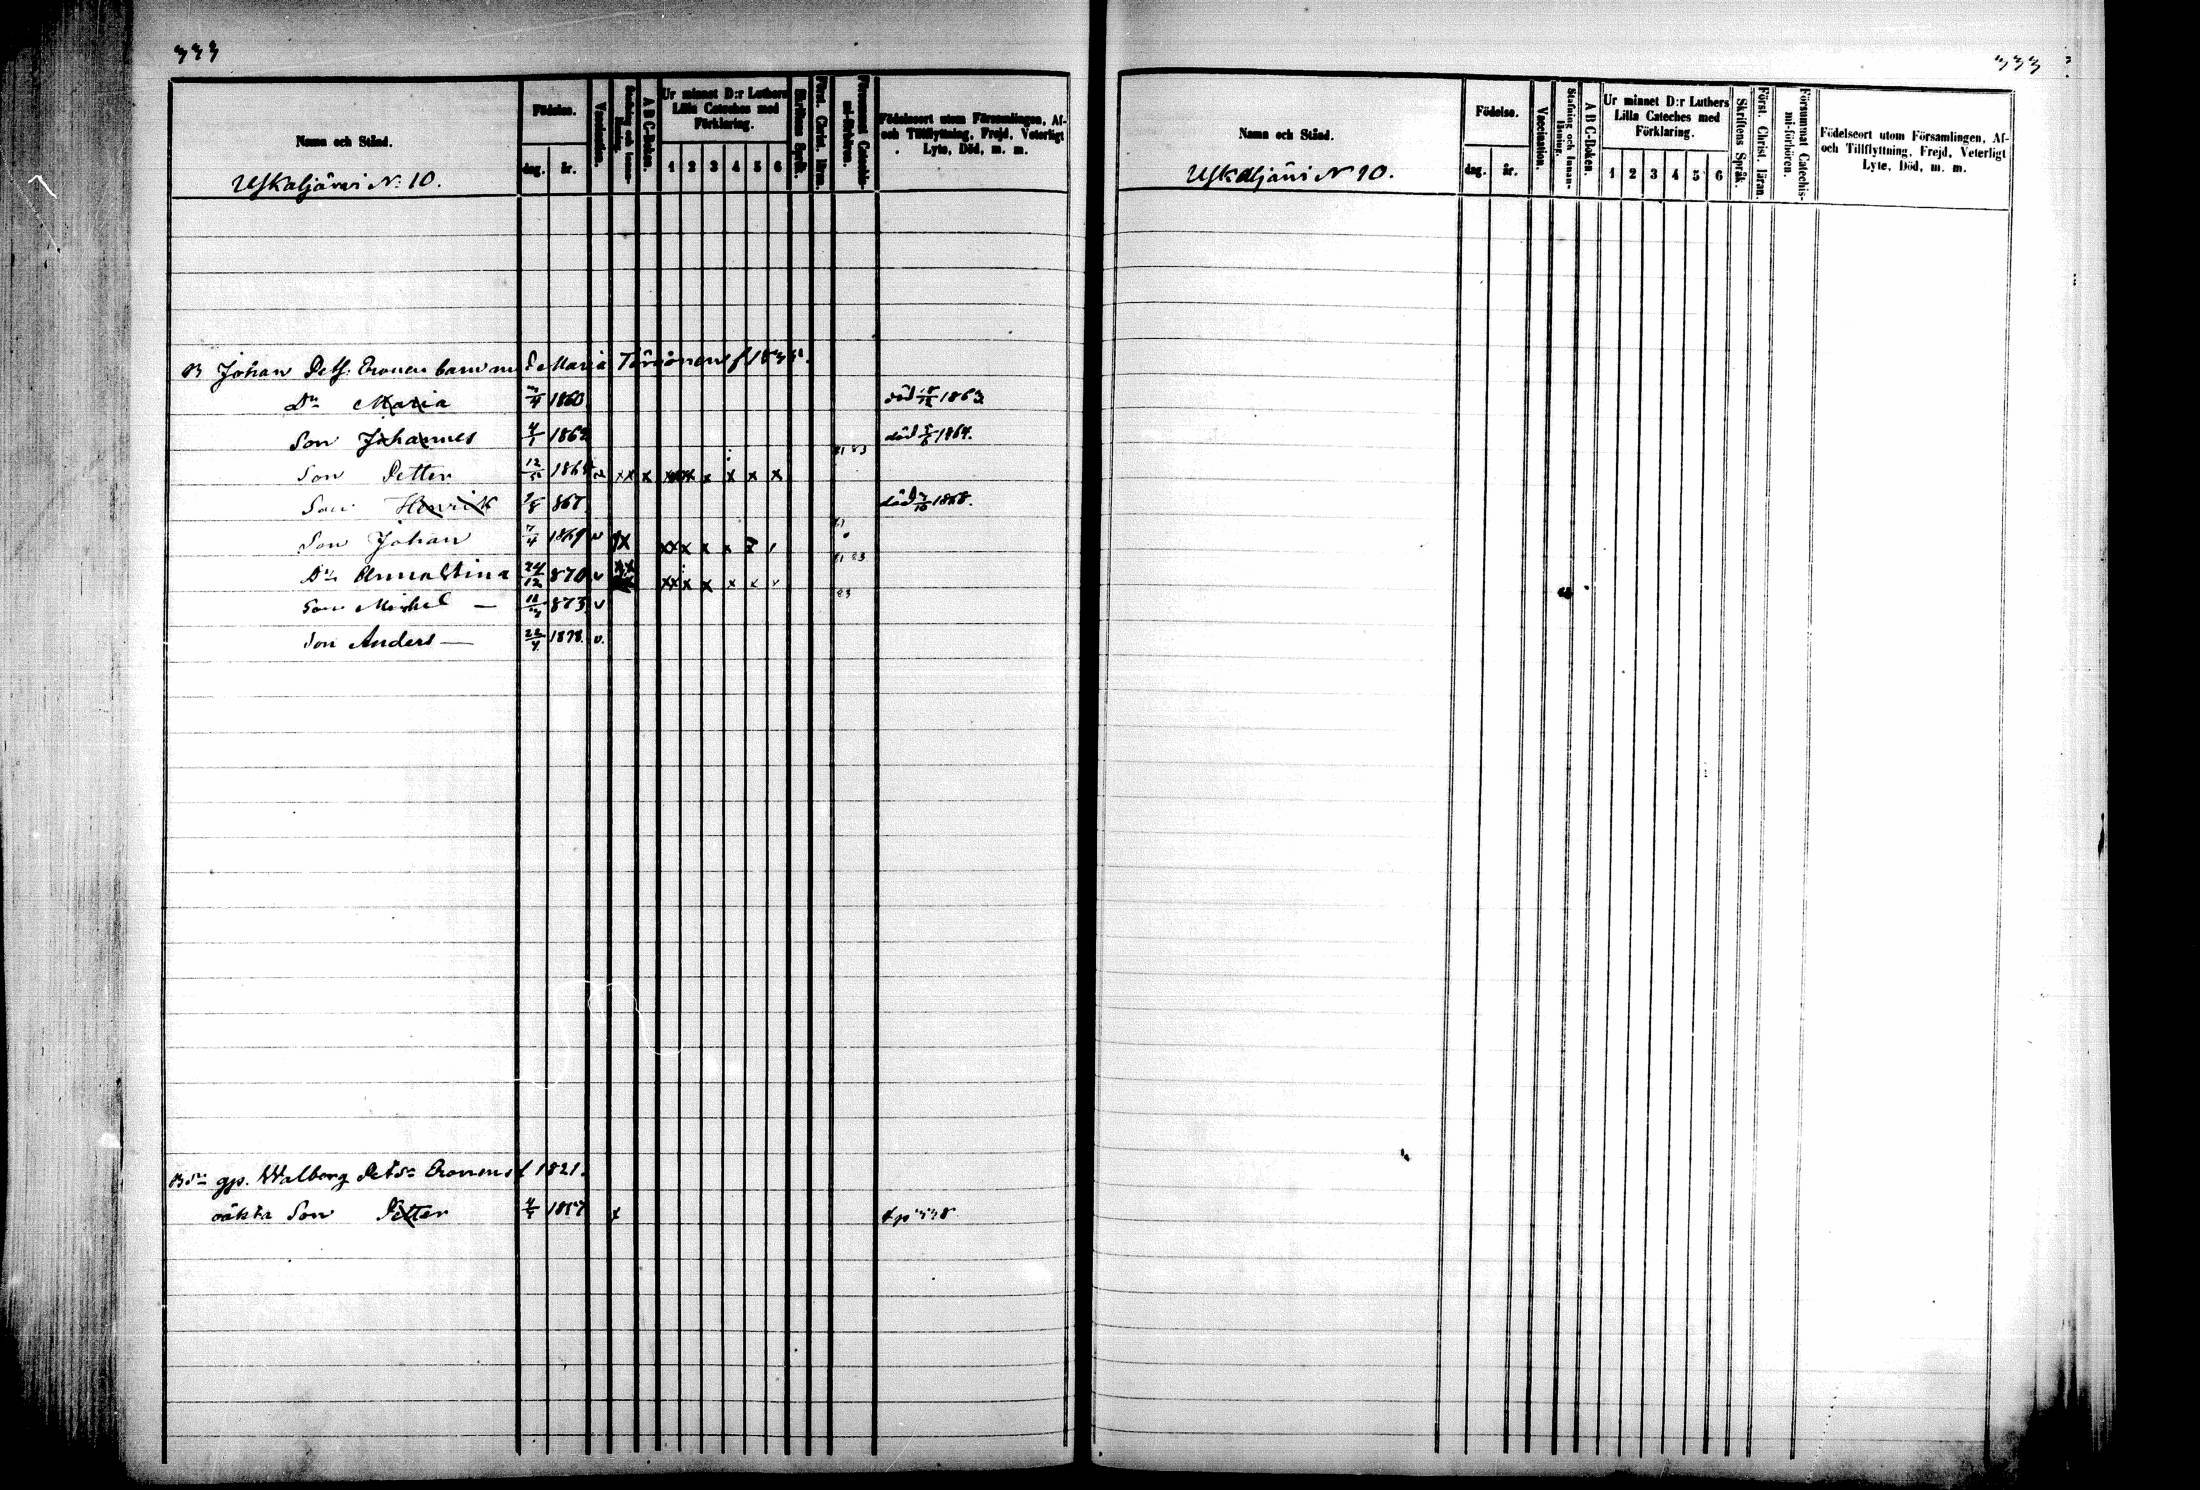 333
Namn och Stånd.
Födelse.
dag. år.
Vaccination.
Stafning och Innan-läsning.
A B C-Boken.
Ur minnet D:r Luthers Lilla Cateches med Förklaring.
1 2 3 4 5 6
Skriftens Språk.
Först. Christ. läran.
Försummat Catechis-mi-förhören.
Födelseort utom Församlingen, Af- och Tillflyttning, Frejd, Veterligt Lyte, Död, m. m.
Uskaljärvi N: 10.
B Johan Maria
Dr Maria 1860 död 1863
Son Johannes 4/1 1862 död 1864.
81 83
Son Petter 12 1865 v x x x x x x x x
Son Henrik 867 död 1868.
Son Johan 7/4 1869 v x x x x x
81 83
Dr Anna Stina 24/12 870 v x x x x x x
83
Son Michel — 873 v
Son Anders — 22/4 1878. v.
gp. Walborg f 1821.
oäkta Son Petter 1857 x
333
Namn och Stånd.
Födelse.
dag. år.
Vaccination.
Stafning och Innan-läsning.
A B C-Boken.
Ur minnet D:r Luthers Lilla Cateches med Förklaring.
1 2 3 4 5 6
Skriftens Språk.
Först. Christ. läran.
Försummat Catechis-mi-förhören.
Födelseort utom Församlingen, Af- och Tillflyttning, Frejd, Veterligt Lyte, Död, m. m.
Uskaljärvi N 10.